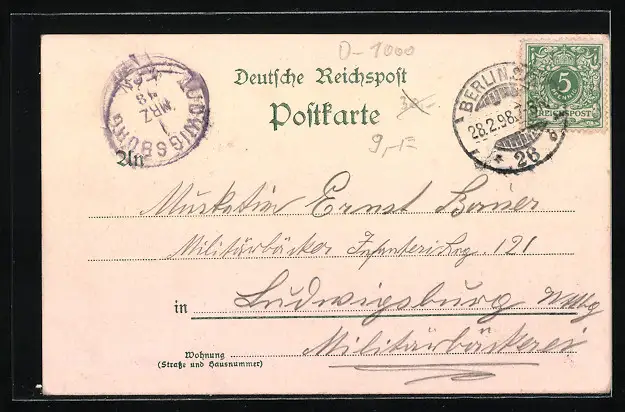 D-1000
Deutsche Reichspost
Postkarte
9,-
LUDWIGSBURG
1 MRZ 98
BERLIN
28.2.98
26
5
REICHSPOST
An
Musketier Ernst Bauer
Militärbäcker Infanterie Reg. 121
in Ludwigsburg Wttbg
Militärbäckerei
Wohnung
(Straße und Hausnummer)